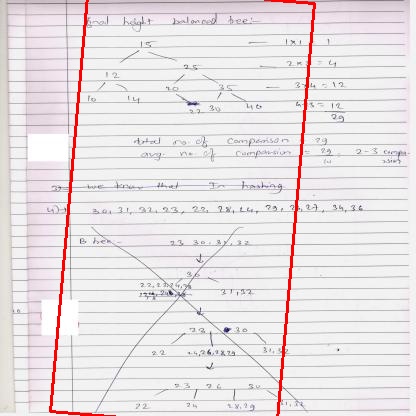 final height balanced tree:-
15 — 1x1 1
12 25 — 2x2 = 4
10 14 20 35 — 3x4 = 12
22 30 40 4x3 = 12
29
total no. of comparison 29
avg. no. of comparison = 29/10 2-3 compa-
rision
we know that In hashing
4) → 30, 31, 32, 23, 22, 28, 24, 29, 26, 27, 34, 36
B tree:- 23 30, 31, 32
30
31, 32
28 30
22 24,26,28,29 31,32
23 26 30
22 24 28,29 31,32